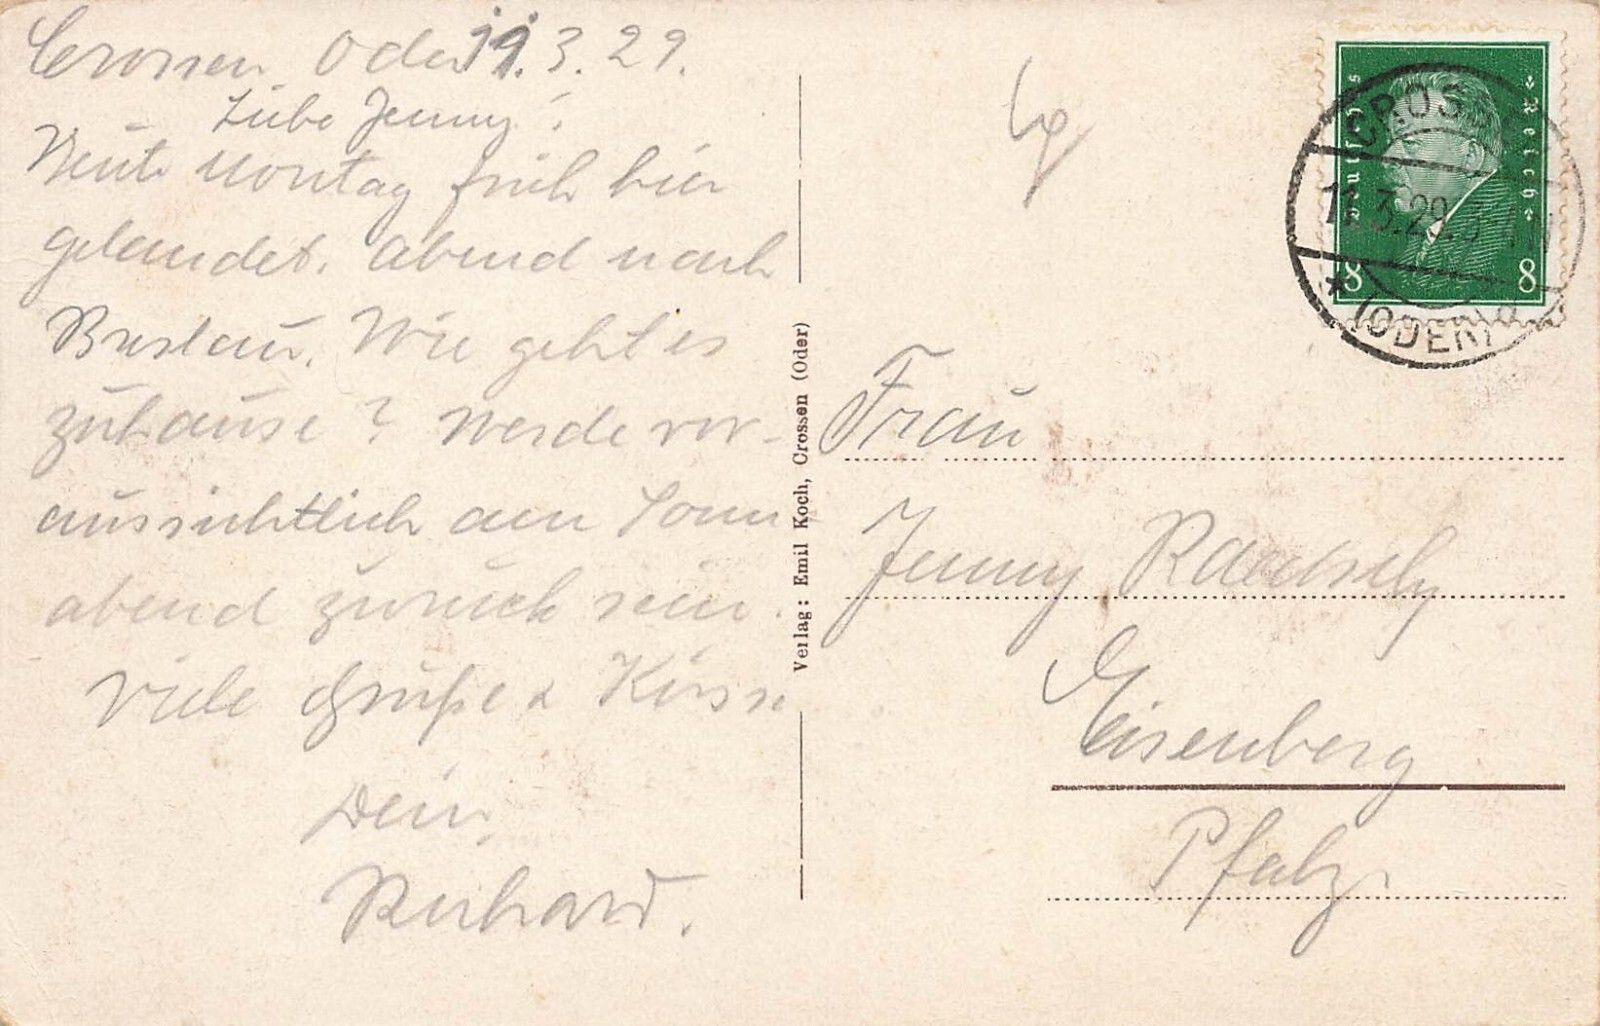 Crossen Oder 11.3.29.
Liebe Jenny!
Heute Montag früh hier
gelandet. Abend nach
Breslau. Wie geht es
zuhause? Werde vor-
aussichtlich am Sonn-
abend zurück sein.
Viele Grüße & Küsse
Dein
Richard.
Verlag: Emil Koch, Crossen (Oder)
Deutsches Reich
8 8
CROSSEN
11.3.29.
* (ODER)
Frau
Jenny
Eisenberg
Pfalz.